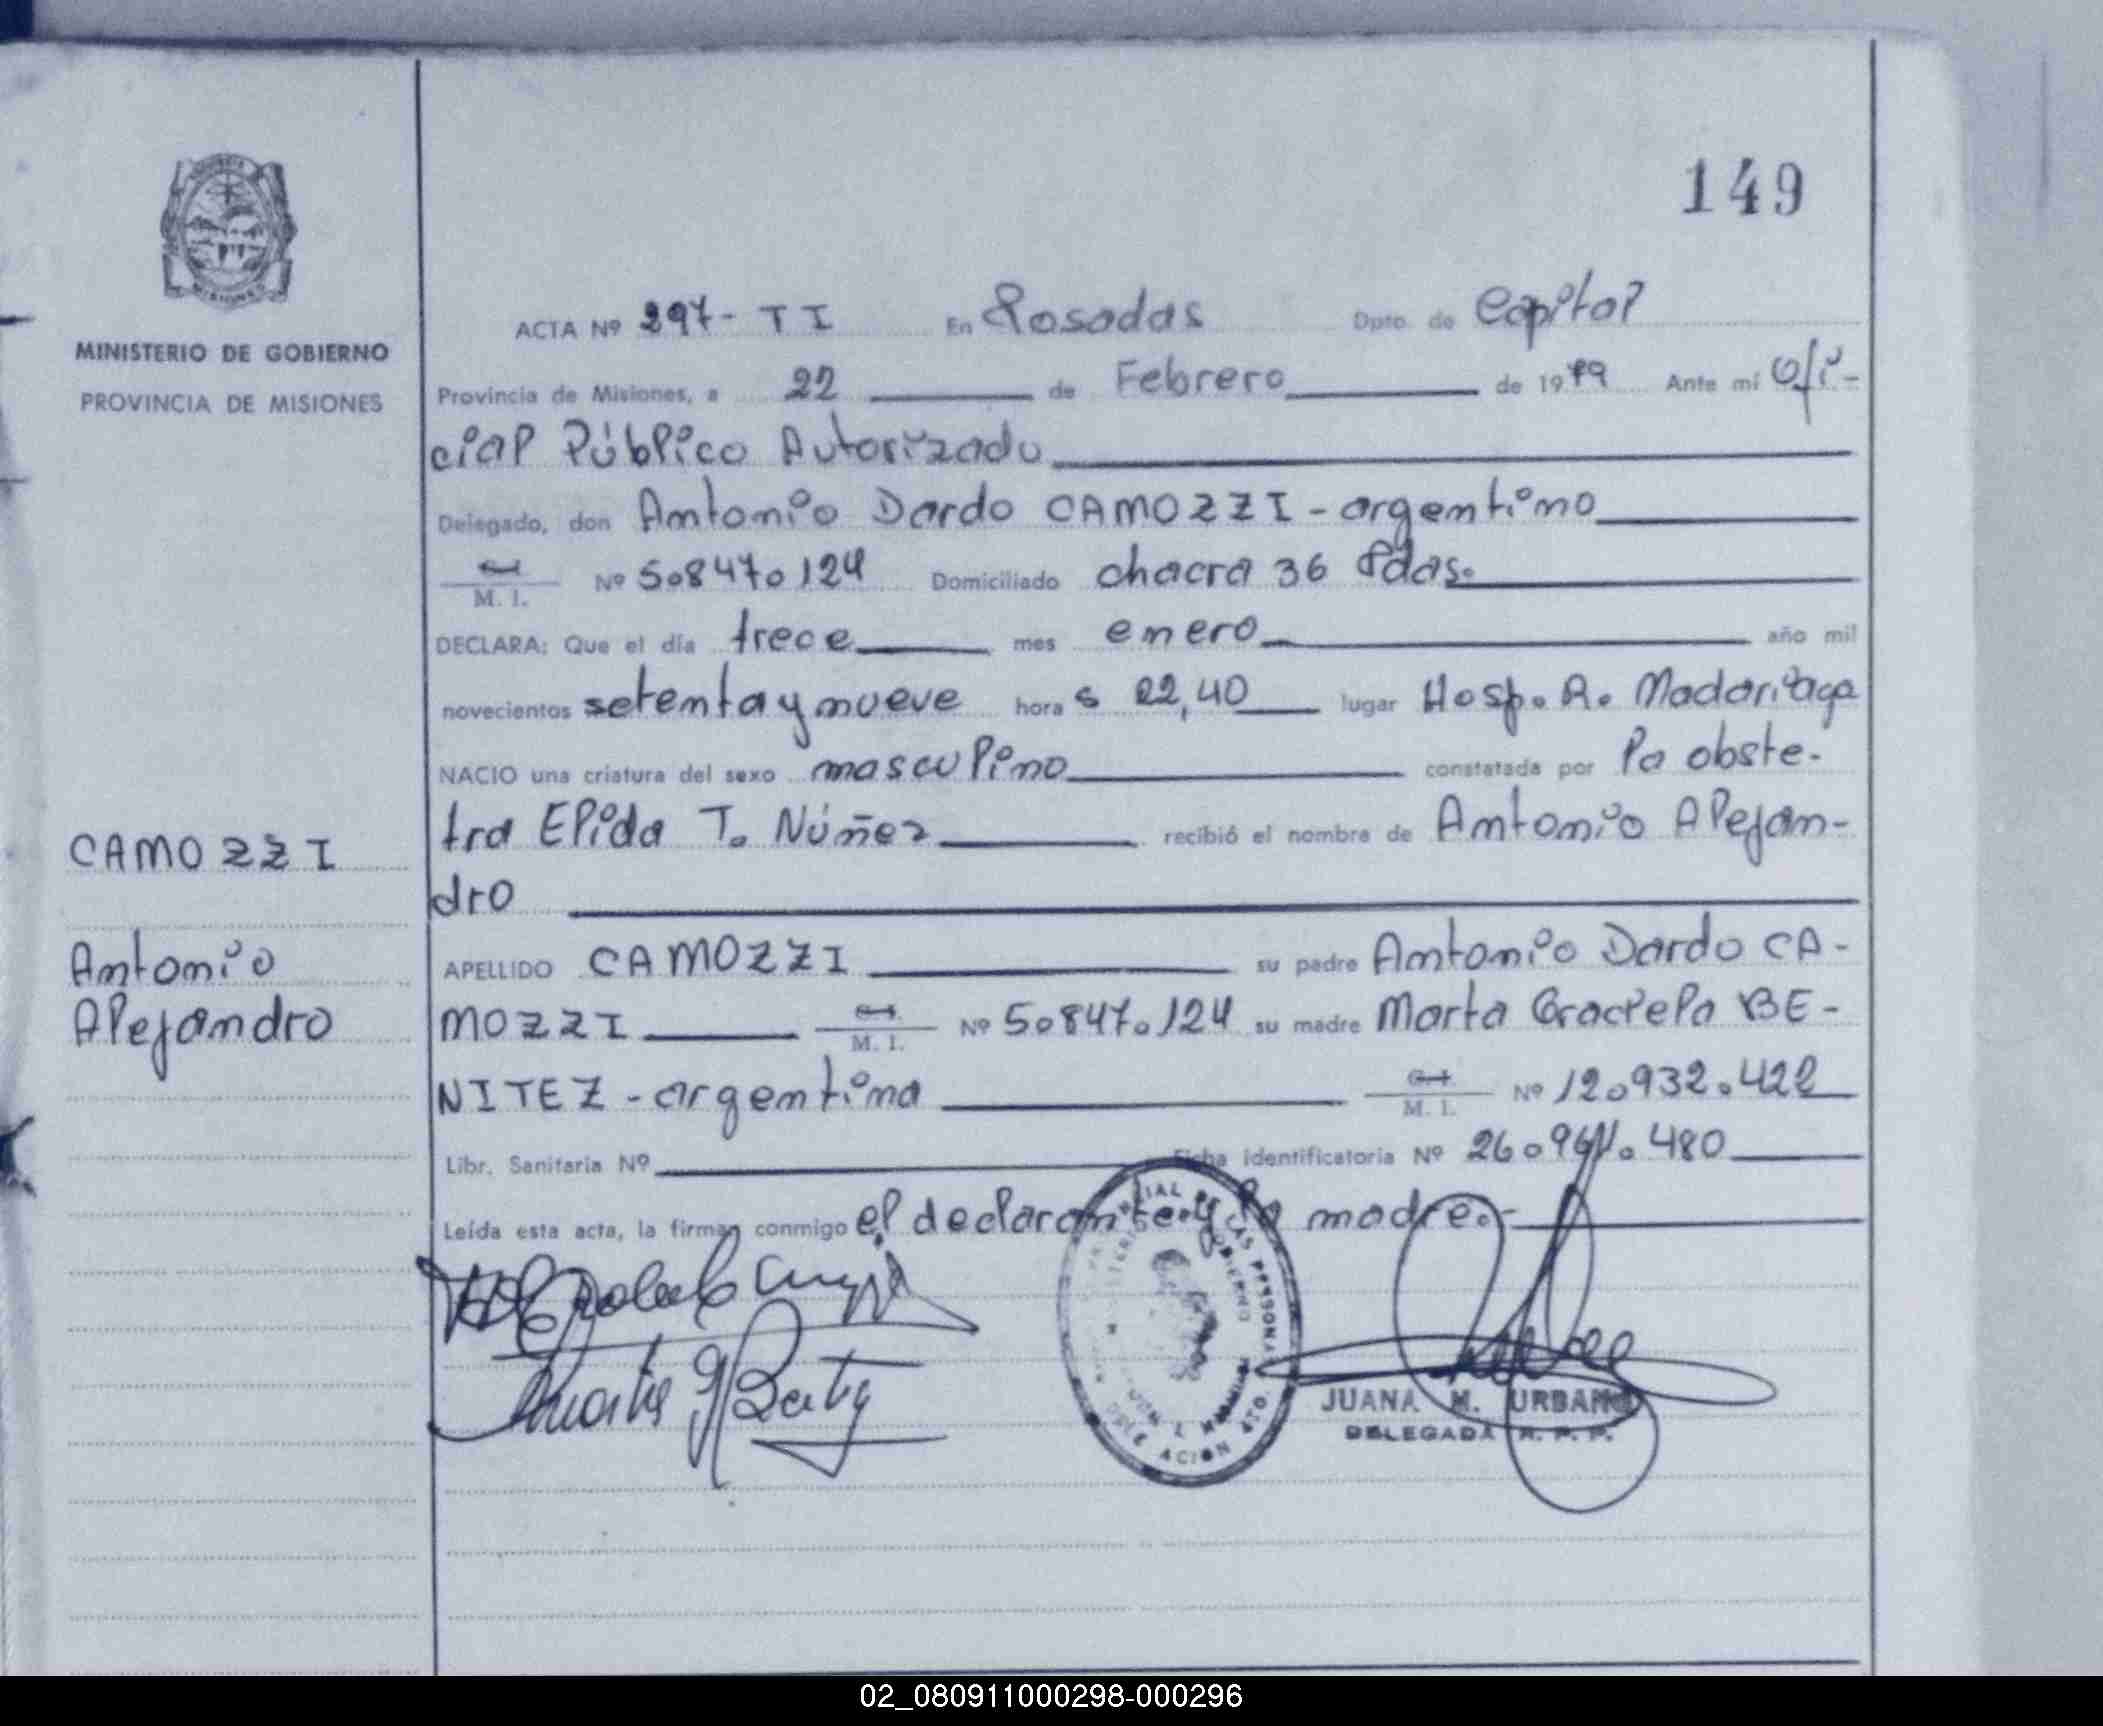 149
MINISTERIO DE GOBIERNO
PROVINCIA DE MISIONES
ACTA Nº 297 - TI En Posadas Dpto. de Capital
Provincia de Misiones, a 22 de Febrero de 1979 Ante mí Ofi-
cial Público Autorizado
Delegado, don Antonio Dardo CAMOZZI - argentino
M. I. Nº 5.847.124 Domiciliado chacra 36 Pdas.
DECLARA: Que el día trece mes enero año mil
novecientos setenta y nueve hora s 22,40 lugar Hosp. R. Madariaga
NACIO una criatura del sexo masculino constatada por la obste-
tra Elida T. Núñez recibió el nombre de Antonio Alejan-
dro
APELLIDO CAMOZZI su padre Antonio Dardo CA-
MOZZI M. I. Nº 5.847.124 su madre Marta Graciela BE-
NITEZ - argentina M. I. Nº 12.932.422
Libr. Sanitaria Nº Ficha identificatoria Nº 26.961.480
Leída esta acta, la firman conmigo el declarante y la madre.-
CAMOZZI
Antonio
Alejandro
JUANA M. URBANO
DELEGADA R. P. P.
02_080911000298-000296